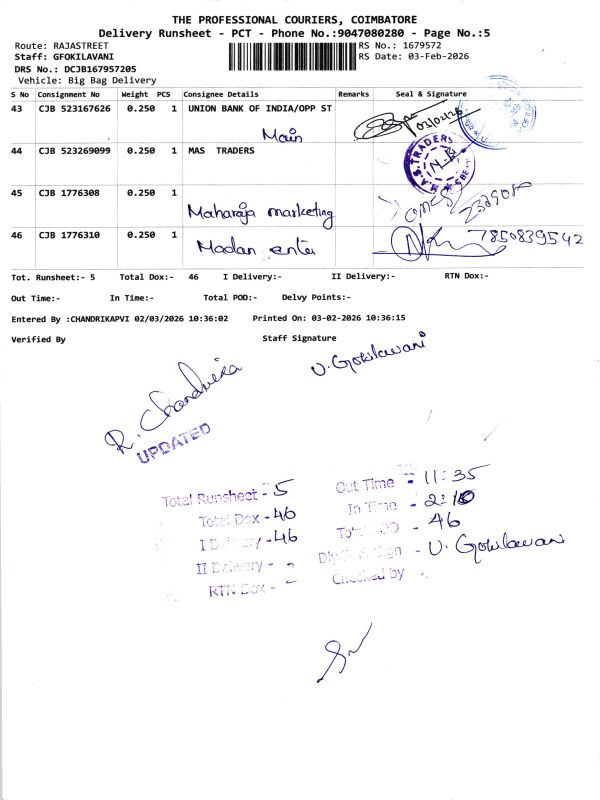 THE PROFESSIONAL COURIERS, COIMBATORE
Delivery Runsheet - PCT - Phone No.:9047080280 - Page No.:5
Route: RAJASTREET
RS No.: 1679572
Staff: GFOKILAVANI
RS Date: 03-Feb-2026
DRS No.: DCJB167957205
Vehicle: Big Bag Delivery
S No Consignment No Weight PCS Consignee Details Remarks Seal & Signature
43 CJB 523167626 0.250 1 UNION BANK OF INDIA/OPP ST
Main
03/02/26
44 CJB 523269099 0.250 1 MAS TRADERS
TRADERS
45 CJB 1776308 0.250 1
Maharaja marketing
46 CJB 1776310 0.250 1
Madan enter
7850839542
Tot. Runsheet:- 5 Total Dox:- 46 I Delivery:- II Delivery:- RTN Dox:-
Out Time:- In Time:- Total POD:- Delvy Points:-
Entered By :CHANDRIKAPVI 02/03/2026 10:36:02 Printed On: 03-02-2026 10:36:15
Verified By Staff Signature
U. Gokilavani
R. Chandrika
UPDATED
Total Runsheet - 5
Total Dox - 46
I Delivery - 46
II Delivery -
RTN Dox -
Out Time - 11:35
In Time - 2:10
Total POD - 46
Sign - U. Gokilavani
Checked by -